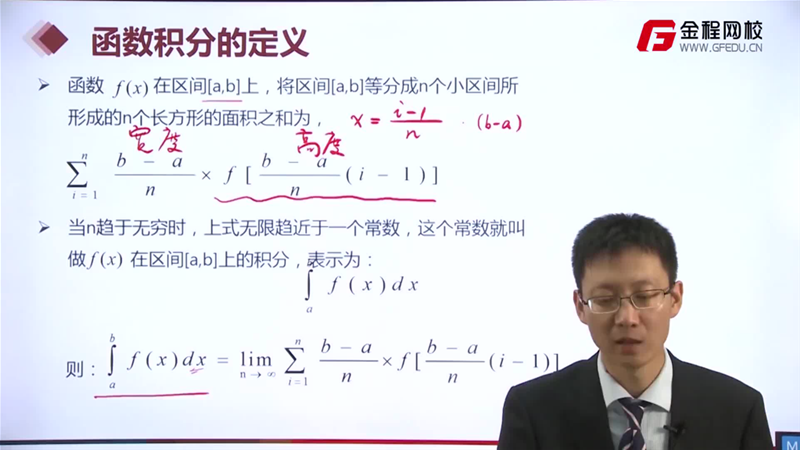 函数积分的定义
金程网校
WWW.GFEDU.CN
函数 f(x) 在区间[a,b]上，将区间[a,b]等分成n个小区间所
形成的n个长方形的面积之和为，
x = (i-1)/n · (b-a)
宽度 高度
∑_{i=1}^{n} (b-a)/n × f[(b-a)/n (i-1)]
当n趋于无穷时，上式无限趋近于一个常数，这个常数就叫
做f(x) 在区间[a,b]上的积分，表示为：
∫_a f(x)dx
则：∫_a^b f(x)dx = lim_{n→∞} ∑_{i=1}^{n} (b-a)/n × f[(b-a)/n (i-1)]
M